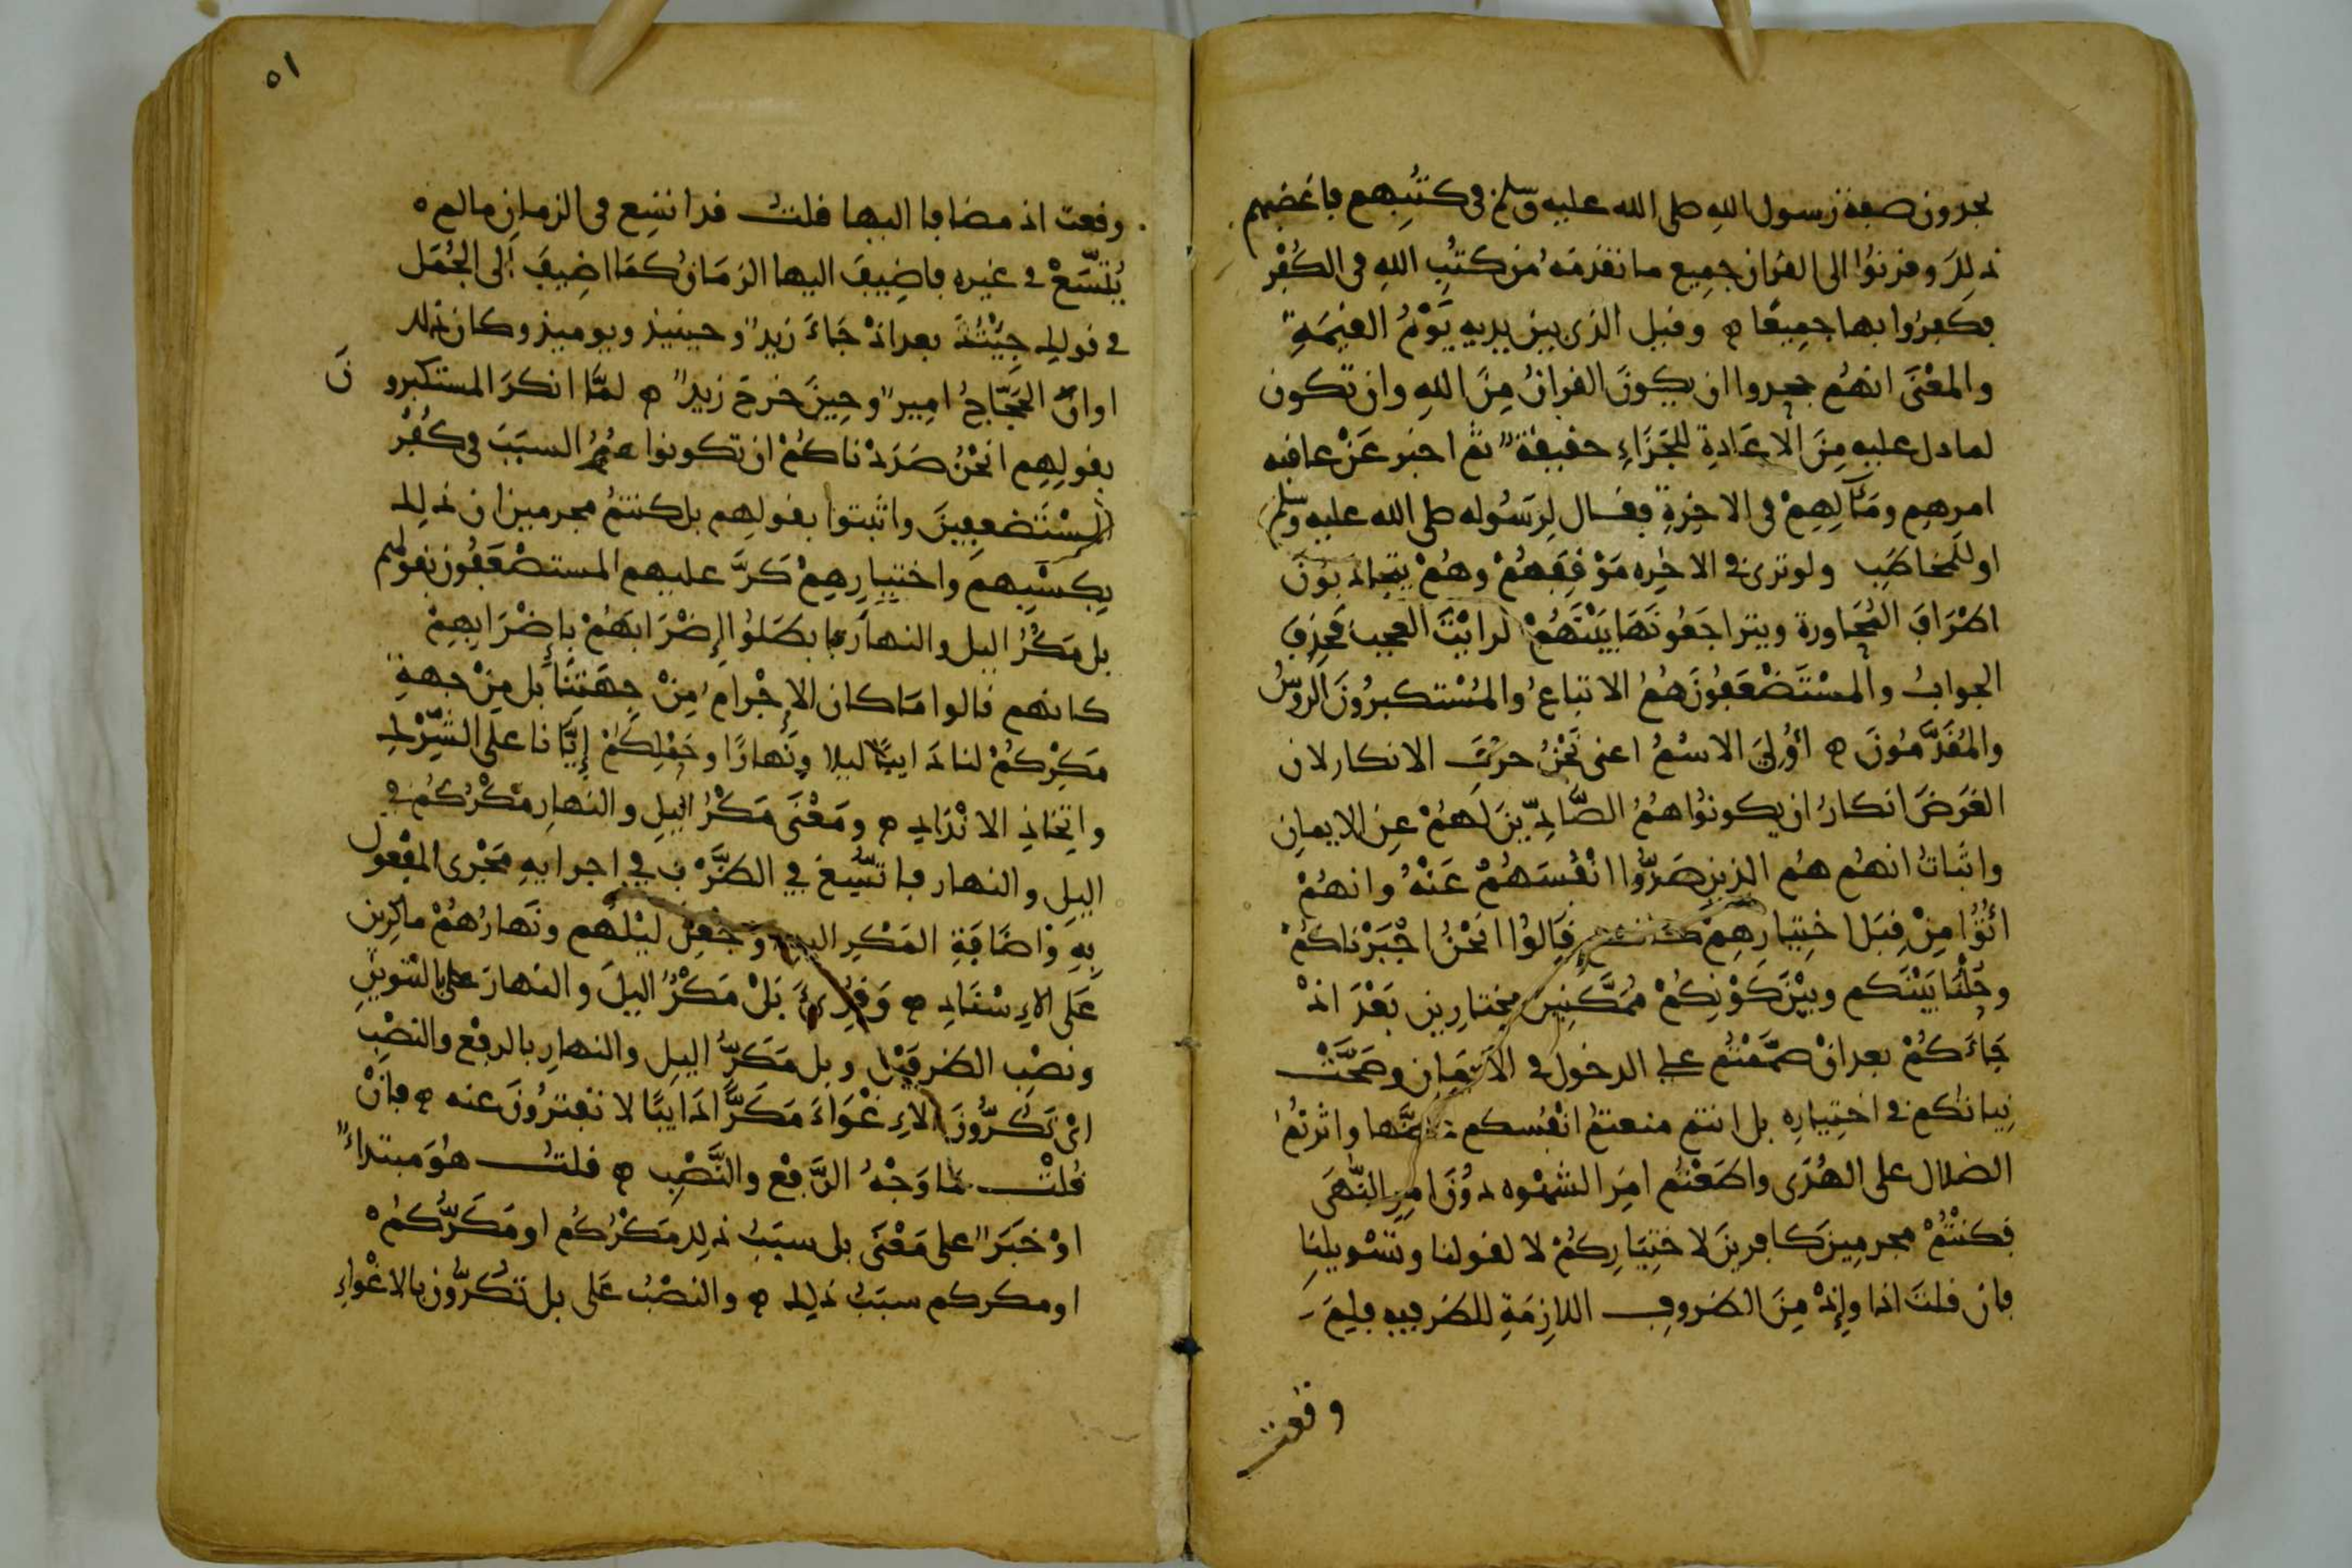 يجدون صفة رسول الله صلى الله عليه وسلم في كتبهم فاغضبهم
ذلك وقرنوا الى القران جميع ما تقدمه من كتب الله في الكفر
فكفروا بها جميعا ه وقيل الذي بين يديه يوم القيمة
والمعنى انهم جحدوا ان يكون القران من الله وان تكون
لما دل عليه من الاعادة للجزاء حقيقة ثم اخبر عن عاقبة
امرهم ومآلهم في الاخرة فقال لرسوله صلى الله عليه وسلم
او للمخاطب ولو ترى في الاخرة موقفهم وهم يتجاذبون
اطراف المحاورة ويتراجعونها بينهم لرايت العجب فحذف
الجواب والمستضعفون هم الاتباع والمستكبرون الروس
والمقدمون ه اولي الاسم اعني نحن حرف الانكار لان
الغرض انكار ان يكونوا هم الصادين لهم عن الايمان
واثبات انهم هم الذين صدوا انفسهم عنه وانهم
اتوا من قبل اختيارهم كانهم قالوا انحن اجبرناكم
وحلنا بينكم وبين كونكم ممكنين مختارين بعد اذ
جاءكم بعد ان صممتم على الدخول في الايمان وصحت
نياتكم في اختياره بل انتم منعتم انفسكم حظها واثرتم
الضلال على الهدى واطعتم امر الشهوة دون امر النهى
فكنتم مجرمين كافرين لاختياركم لا لقولنا وتسويلنا
فان قلت اذا واذ من الظروف اللازمة للظرفية فلم
وقعت
٥١
وقعت اذ مضافا اليها قلت قد اتسع في الزمان ما لم
يتسع في غيره فاضيف اليها الزمان كما اضيف الى الجمل
في قولك جيتك بعد اذ جاء زيد وحينيذ ويوميذ وكان ذلك
اوان الحجاج امير وحين خرج زيد ه لما انكر المستكبرون
بقولهم انحن صددناكم ان تكونوا هم السبب في كفر
المستضعفين واثبتوا بقولهم بل كنتم مجرمين ان ذلك
بكسبهم واختيارهم كر عليهم المستضعفون بقولهم
بل مكر اليل والنهار فابطلوا اضرابهم باضرابهم
كانهم قالوا ما كان الاجرام من جهتنا بل من جهة
مكركم لنا دايبا ليلا ونهارا وحملكم ايانا على الشرك
واتخاذ الانداد ه ومعنى مكر اليل والنهار مكركم في
اليل والنهار فاتسع في الظرف في اجرايه مجرى المفعول
به واضافة المكر اليه وجعل ليلهم ونهارهم ماكرين
على الاسناد ه وقرئ بل مكر اليل والنهار على التنوين
ونصب الظرفين وبل مكر اليل والنهار بالرفع والنصب
اي تكرون الاغواء مكرا دايبا لا تفترون عنه ه فان
قلت ما وجه الرفع والنصب ه قلت هو مبتداء
او خبر على معنى بل سبب ذلك مكركم او مكركم
او مكركم سبب ذلك ه والنصب على بل تكرون بالاغواء